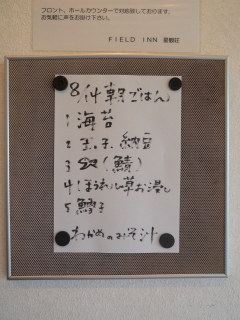 フロント、ホールカウンターで対応致しております。
お気軽に声をお掛け下さい。
FIELD INN 星観荘
8/14 朝ごはん
1 海苔
2 玉子、納豆
3 (鯖)
4 ほうれん草お浸し
5 鱈子
わかめのみそ汁